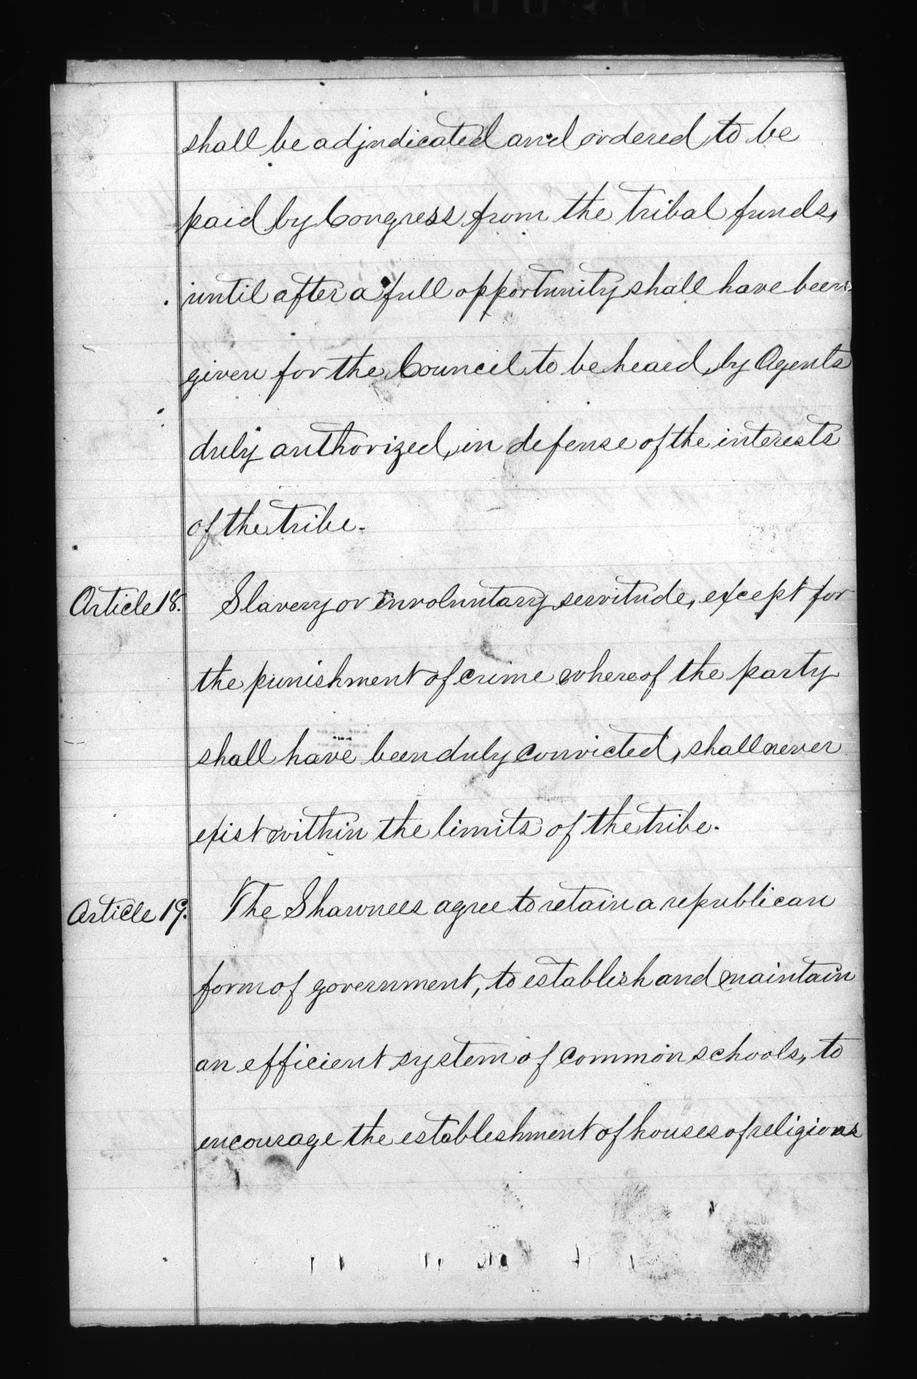 shall be adjudicated and ordered to be
paid by Congress from the tribal funds,
until after a full opportunity shall have been
given for the Council to be heard, by Agents
duly authorized, in defense of the interests
of the tribe.
Article 18. Slavery or involuntary servitude, except for
the punishment of crime whereof the party
shall have been duly convicted, shall never
exist within the limits of the tribe.
Article 19. The Shawnees agree to retain a republican
form of government, to establish and maintain
an efficient system of common schools, to
encourage the establishment of houses of religious